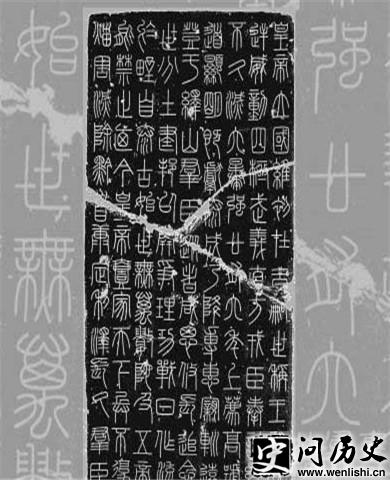 強廿有六
皇帝立國維初在昔嗣世稱王
逆威動四極武義直方戎臣奉
不久滅六暴強廿有六年上薦高號
道顯明既獻泰成乃降專惠親巡
登于繹山群臣從者咸思攸長追念
世分土建邦以開爭理功戰日作流
於野自泰古始世無萬數陀及五帝
能禁止乃今皇帝壹家天下兵不復
害滅除黔首康定利澤長久群臣
始世無萬數
史问历史
www.wenlishi.cn